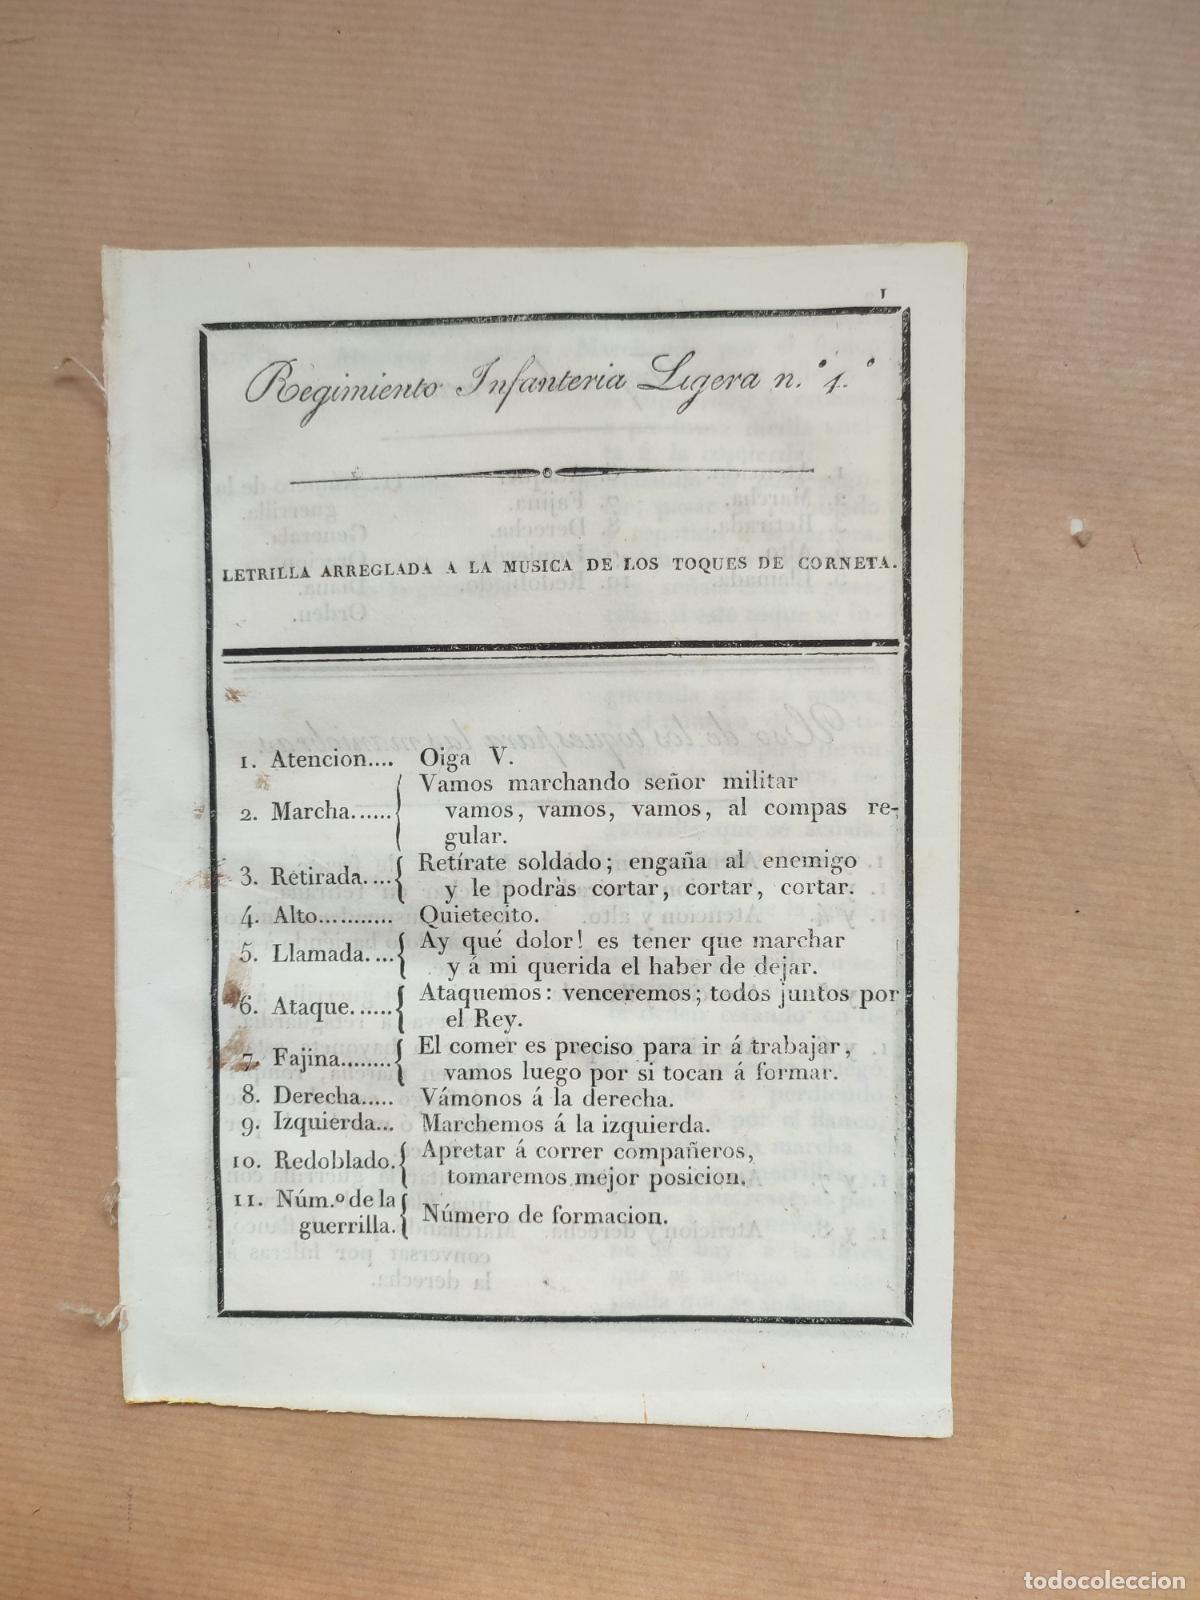 1
Regimiento Infanteria Ligera n.º 1.º
LETRILLA ARREGLADA A LA MUSICA DE LOS TOQUES DE CORNETA.
1. Atencion.... Oiga V.
2. Marcha...... Vamos marchando señor militar
vamos, vamos, vamos, al compas re-
gular.
3. Retirada.... Retírate soldado; engaña al enemigo
y le podràs cortar, cortar, cortar.
4. Alto........... Quietecito.
5. Llamada.... Ay qué dolor! es tener que marchar
y á mi querida el haber de dejar.
6. Ataque...... Ataquemos: venceremos; todos juntos por
el Rey.
7. Fajina........ El comer es preciso para ir á trabajar,
vamos luego por si tocan á formar.
8. Derecha..... Vámonos á la derecha.
9. Izquierda... Marchemos á la izquierda.
10. Redoblado. Apretar á correr compañeros,
tomaremos mejor posicion.
11. Núm.º de la
guerrilla. Número de formacion.
todocoleccion